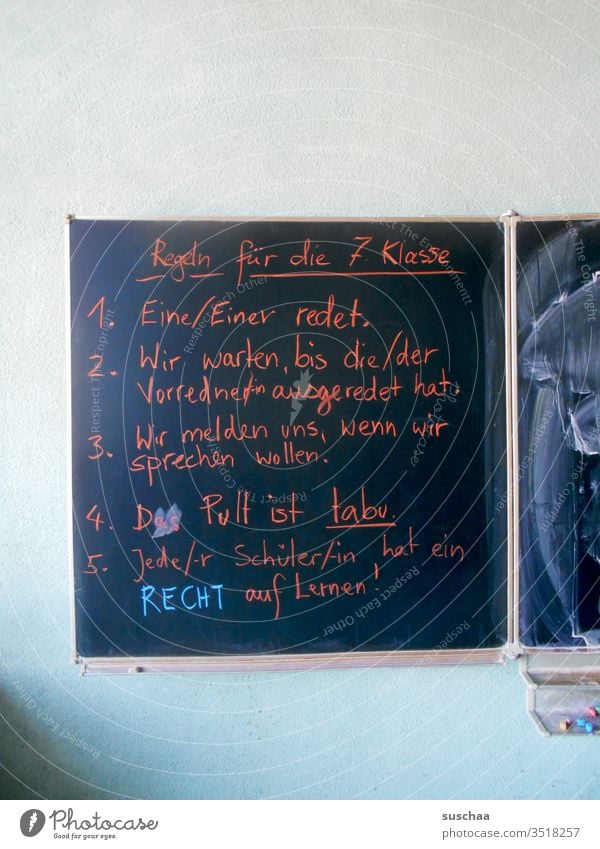 Regeln für die 7. Klasse
1. Eine/Einer redet.
2. Wir warten, bis die/der
Vorredner/in ausgeredet hat.
3. Wir melden uns, wenn wir
sprechen wollen.
4. Das Pult ist tabu.
5. Jede/-r Schüler/in hat ein
RECHT auf Lernen!
PHOTOCASE
Good for your eyes.
suschaa
# 3518257